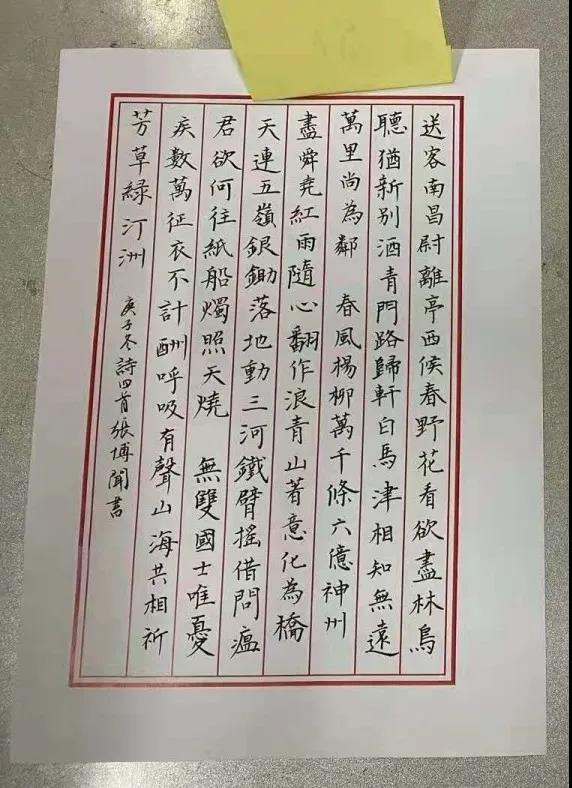 送客南昌尉離亭西候春野花看欲盡林鳥
聽猶新別酒青門路歸軒白馬津相知無遠
萬里尚為鄰　春風楊柳萬千條六億神州
盡舜堯紅雨隨心翻作浪青山著意化為橋
天連五嶺銀鋤落地動三河鐵臂搖借問瘟
君欲何往紙船燭照天燒　無雙國士唯憂
疾數萬征衣不計酬呼吸有聲山海共相祈
芳草綠汀洲　庚子冬詩四首張博聞書